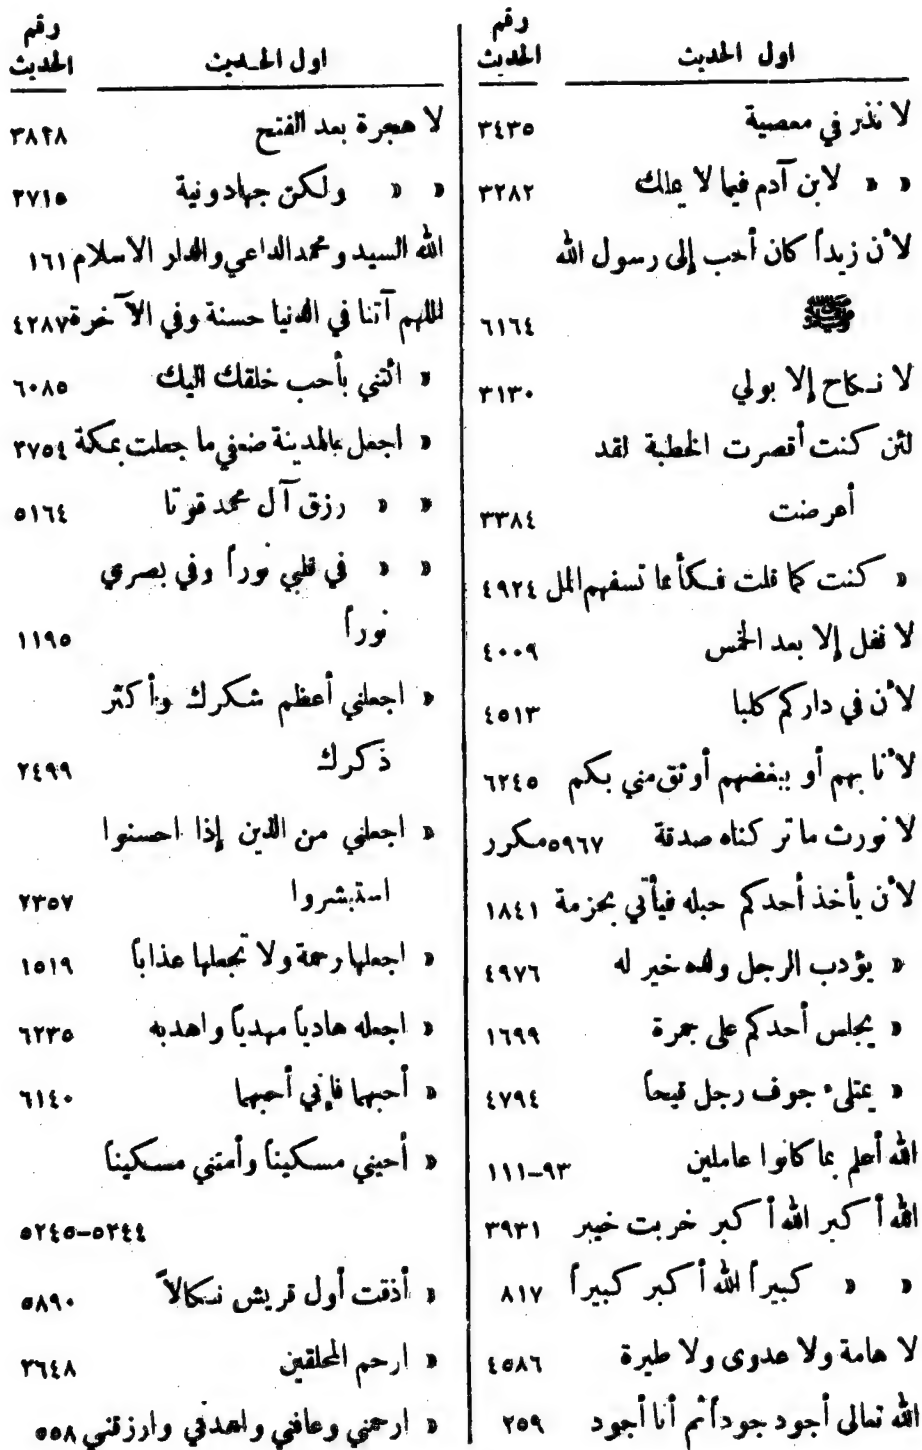 اول الحديث رقم الحديث
لا نذر في معصية ٣٤٣٥
« « لابن آدم فيما لا يملك ٣٢٨٢
لأن زيداً كان أحب إلى رسول الله
ﷺ ٦١٦٤
لا نكاح إلا بولي ٣١٣٠
لئن كنت أقصرت الخطبة لقد
أعرضت ٣٣٨٤
« كنت كما قلت فكأنما تسفهم المل ٤٩٢٤
لا نفل إلا بعد الخمس ٤٠٠٩
لأن في داركم كلبا ٤٥١٣
لأنا بهم أو ببعضهم أوثق مني بكم ٦٢٤٥
لا نورث ما تركناه صدقة ٥٩٦٧مكرر
لأن يأخذ أحدكم حبله فيأتي بحزمة ١٨٤١
« يؤدب الرجل ولده خير له ٤٩٧٦
« يجلس أحدكم على جمرة ١٦٩٩
« يمتلىء جوف رجل قيحاً ٤٧٩٤
الله أعلم بما كانوا عاملين ٩٣-١١١
الله أكبر الله أكبر خربت خيبر ٣٩٣١
« « كبيراً الله أكبر كبيراً ٨١٧
لا هامة ولا عدوى ولا طيرة ٤٥٨٦
الله تعالى أجود جوداً ثم أنا أجود ٢٥٩
اول الحديث رقم الحديث
لا هجرة بعد الفتح ٣٨٢٨
« « ولكن جهاد ونية ٢٧١٥
الله السيد ومحمد الداعي والدار الاسلام ١٦١
اللهم آتنا في الدنيا حسنة وفي الآخرة ٤٢٨٧
« ائتني بأحب خلقك اليك ٦٠٨٥
« اجعل بالمدينة ضعفي ما جعلت بمكة ٢٧٥٤
« « رزق آل محمد قوتا ٥١٦٤
« « في قلبي نوراً وفي بصري
نوراً ١١٩٥
« اجعلني أعظم شكرك وأكثر
ذكرك ٢٤٩٩
« اجعلني من الذين إذا احسنوا
استبشروا ٢٣٥٧
« اجعلها رحمة ولا تجعلها عذاباً ١٥١٩
« اجعله هادياً مهدياً واهدبه ٦٢٣٥
« أحبهما فإني أحبهما ٦١٤٠
« أحيني مسكيناً وأمتني مسكيناً
٥٢٤٤-٥٢٤٥
« أذقت أول قريش نكالاً ٥٨٩٠
« ارحم المحلقين ٢٦٤٨
« ارحمني وعافني واهدني وارزقني ٥٥٨